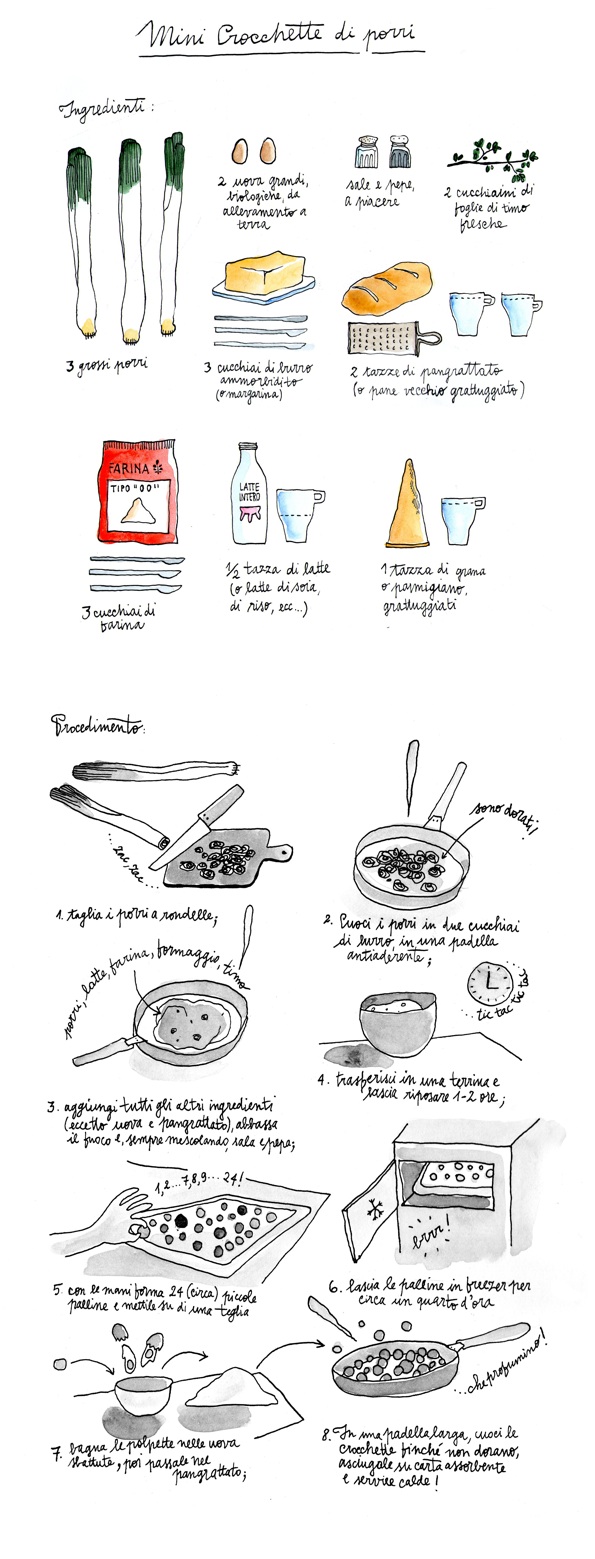 Mini Crocchette di porri
Ingredienti:
3 grossi porri
2 uova grandi,
biologiche, da
allevamento a
terra
sale e pepe,
a piacere
2 cucchiaini di
foglie di timo
fresche
3 cucchiai di burro
ammorbidito
(o margarina)
2 tazze di pangrattato
(o pane vecchio grattuggiato)
FARINA
TIPO "00"
3 cucchiai di
farina
LATTE
INTERO
1/2 tazza di latte
(o latte di soia,
di riso, ecc...)
1 tazza di grana
o parmigiano,
grattuggiati
Procedimento:
...zac, zac...
1. taglia i porri a rondelle;
sono dorati!
2. Cuoci i porri in due cucchiai
di burro, in una padella
antiaderente;
porri, latte, farina, formaggio, timo
3. aggiungi tutti gli altri ingredienti
(eccetto uova e pangrattato), abbassa
il fuoco e, sempre mescolando, sala e pepa;
...tic tac tic tac...
4. trasferisci in una terrina e
lascia riposare 1-2 ore;
1,2...7,8,9...24!
5. con le mani forma 24 (circa) piccole
palline e mettile su di una teglia
brrr!
6. lascia le palline in freezer per
circa un quarto d'ora
7. bagna le polpette nelle uova
sbattute, poi passale nel
pangrattato;
...che profumino!
8. In una padella larga, cuoci le
crocchette finché non dorano,
asciugale su carta assorbente
e servile calde!